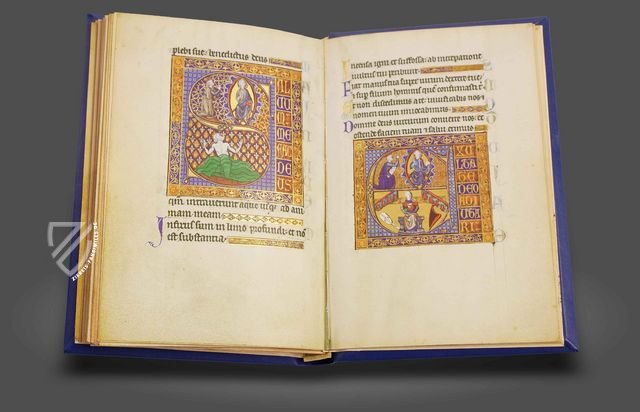 plebi sue. benedictus deus
S
AL
UUM
ME
FAC
DE
US
qm intrauerunt aque usq; ad ani
mam meam
Infixus sum in limo profundi: et nō
est substantia
Incensa igni et suffossa: ab increpatione
uultus tui peribunt
Fiat manus tua super uirum dextere tue:
et sup filium hominis quem confirmasti t
Et non discedimus a te: uiuificabis nos:
nomen tuum inuocabimus
Domine deus uirtutum conuerte nos: et
ostende faciem tuam et salui erimus
E
XUL
TA
TE
DEO
ADI
UTO
RI
ZIEREIS FAKSIMILES